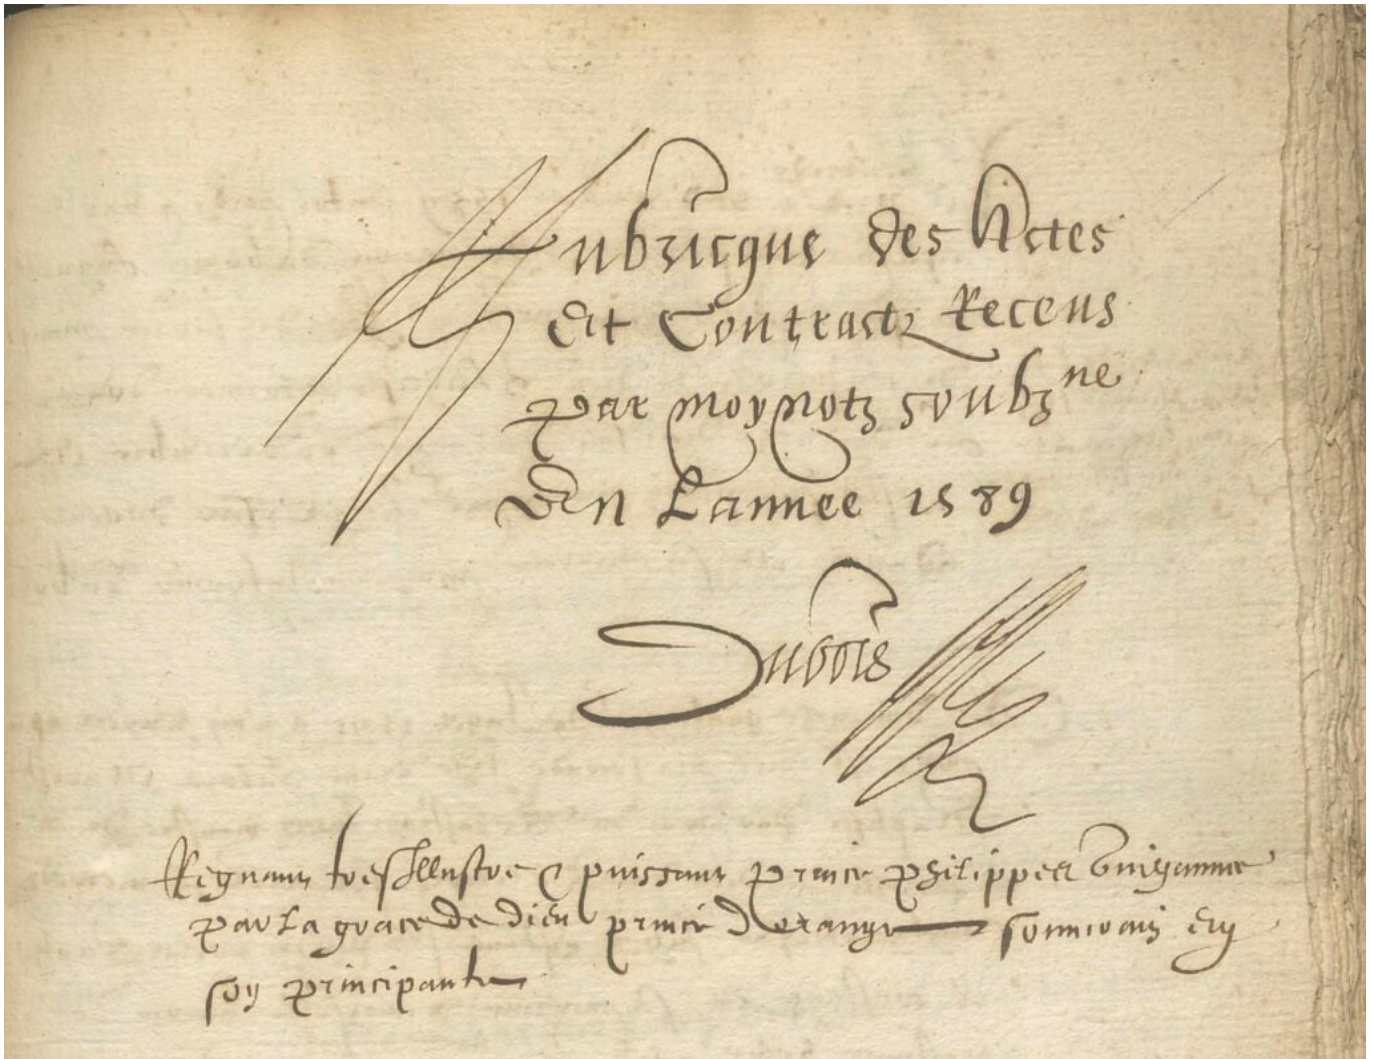 Rubricque des Actes
Et Contractz Receus
par moy notz soubzne
En Lannee 1589
Dubois
Regnant tresIllustre & puissant prince philippes Guilhaume
par La grace de dieu prince dorange souuerain en
soy principaute